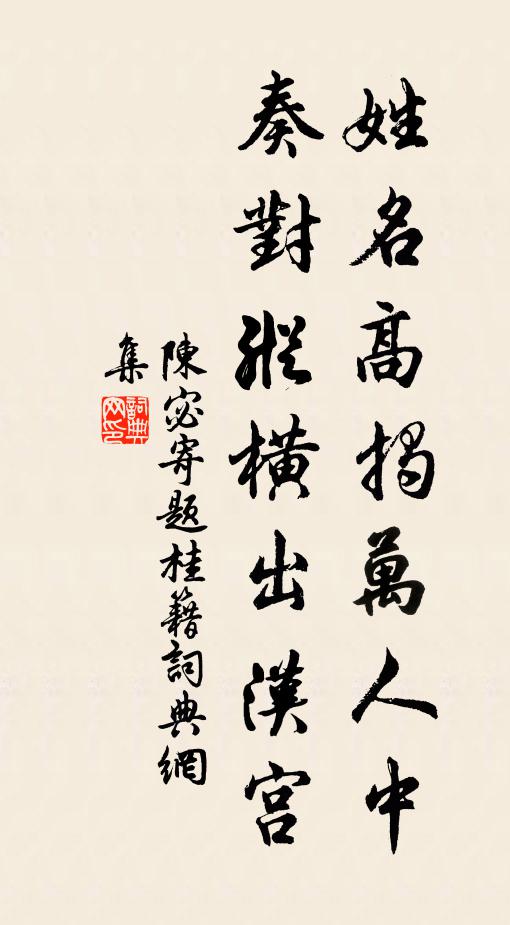 姓名高揭萬人中
奏對縱橫出漢宮
陳宓寄題桂籍詞典網
集
詞典
网印